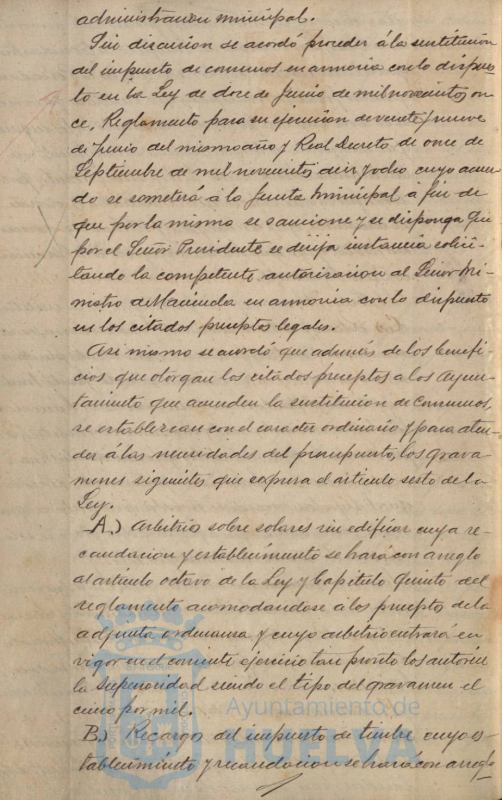 administracion municipal.
Sin discusion se acordó proceder á la sustitución
del impuesto de consumos en armonia con lo dispues-
to en la Ley de doce de Junio de mil novecientos on-
ce, Reglamento para su ejecucion de veinte y nueve
de Junio del mismo año y Real Decreto de once de
Septiembre de mil novecientos diez y ocho cuyo acuer-
do se someterá á la Junta Municipal á fin de
que por la misma se sancione y se disponga que
por el Señor Presidente se dirija instancia solici-
tando la competente autorizacion al Señor Mi-
nistro de Hacienda en armonia con lo dispuesto
en los citados preceptos legales.
Asi mismo se acordó que además de los benefi-
cios que otorgan los citados preceptos a los Ayun-
tamiento que acuerden la sustitucion de consumos,
se establezcan con el caracter ordinario y para aten-
der á las necesidades del presupuesto, los gravá-
menes siguientes que expresa el articulo sesto de la
Ley.
A.) Arbitrio sobre solares sin edificar cuya re-
caudacion y establecimiento se hará con arreglo
al articulo octavo de la Ley y Capitulo quinto del
reglamento acomodandose á los preceptos de la
adjunta ordenansa y cuyo arbitrio entrará en
vigor en el corriente ejercicio tan pronto los autorice
la Superioridad siendo el tipo del gravamen el
cinco por mil.
B.) Recargo del impuesto de timbre cuyo es-
tablecimiento y recaudacion se hará con arreglo
Ayuntamiento de
HUELVA